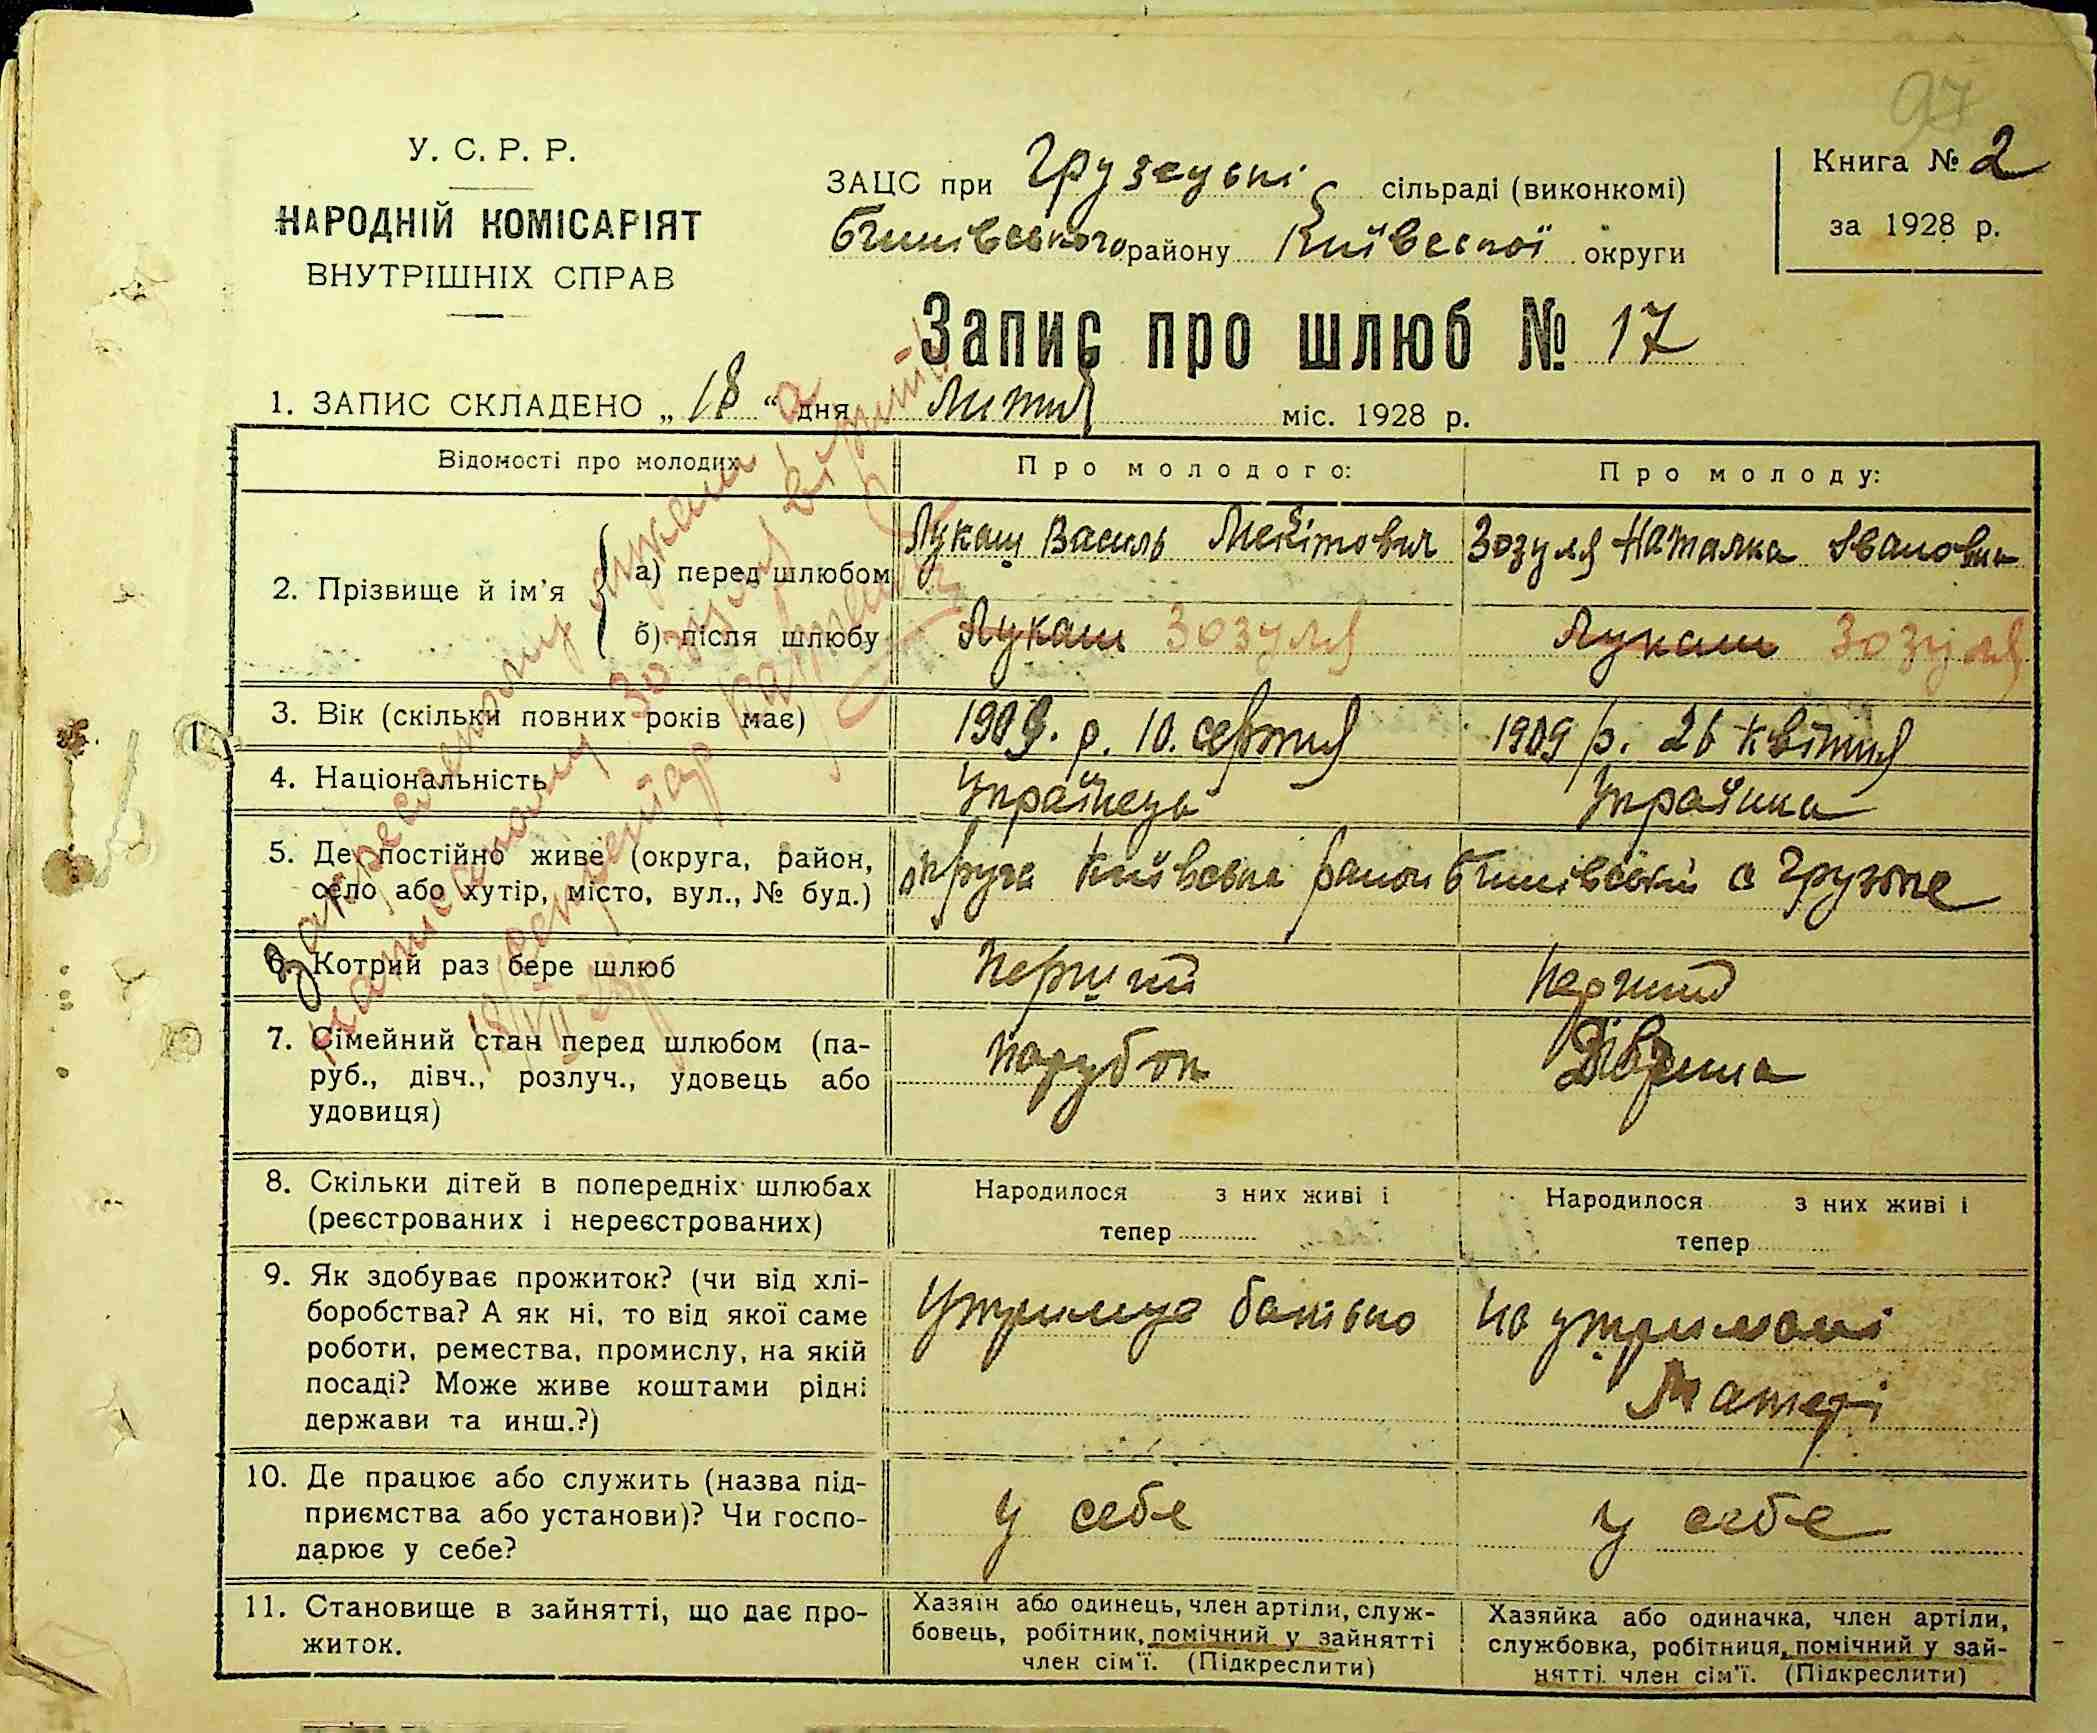 97
У. С. Р. Р.
НАРОДНІЙ КОМІСАРІЯТ
ВНУТРІШНІХ СПРАВ
ЗАЦС при Грузькій сільраді (виконкомі)
Бишівського району Київської округи
Книга № 2
за 1928 р.
Запис про шлюб № 17
1. ЗАПИС СКЛАДЕНО „18“ дня Лютня міс. 1928 р.
Відомості про молодих
Про молодого:
Про молоду:
2. Прізвище й ім'я
а) перед шлюбом
Лукаш Василь Мекітович
Зозуля Наталка Івановна
б) після шлюбу
Лукаш Зозуля
Лукаш Зозуля
3. Вік (скільки повних років має)
1909. р. 10. серпня
1909 р. 26 квітня
4. Національність
Українець
Українка
5. Де постійно живе (округа, район,
село або хутір, місто, вул., № буд.)
округа Київська район Бишівський с Грузьке
6. Котрий раз бере шлюб
Перший
Перший
7. Сімейний стан перед шлюбом (па-
руб., дівч., розлуч., удовець або
удовиця)
парубок
Дівчина
8. Скільки дітей в попередніх шлюбах
(реєстрованих і нереєстрованих)
Народилося з них живі і
тепер
Народилося з них живі і
тепер
9. Як здобуває прожиток? (чи від хлі-
боробства? А як ні, то від якої саме
роботи, ремества, промислу, на якій
посаді? Може живе коштами рідні
держави та инш.?)
Утримує батько
на утримані
Матері
10. Де працює або служить (назва під-
приємства або установи)? Чи госпо-
дарює у себе?
у себе
у себе
11. Становище в зайнятті, що дає про-
житок.
Хазяїн або одинець, член артіли, служ-
бовець, робітник, помічний у зайнятті
член сім'ї. (Підкреслити)
Хазяйка або одиначка, член артіли,
службовка, робітниця, помічний у зай-
нятті член сім'ї. (Підкреслити)
Закресленому Лукаш а
написаному Зозуля вірити